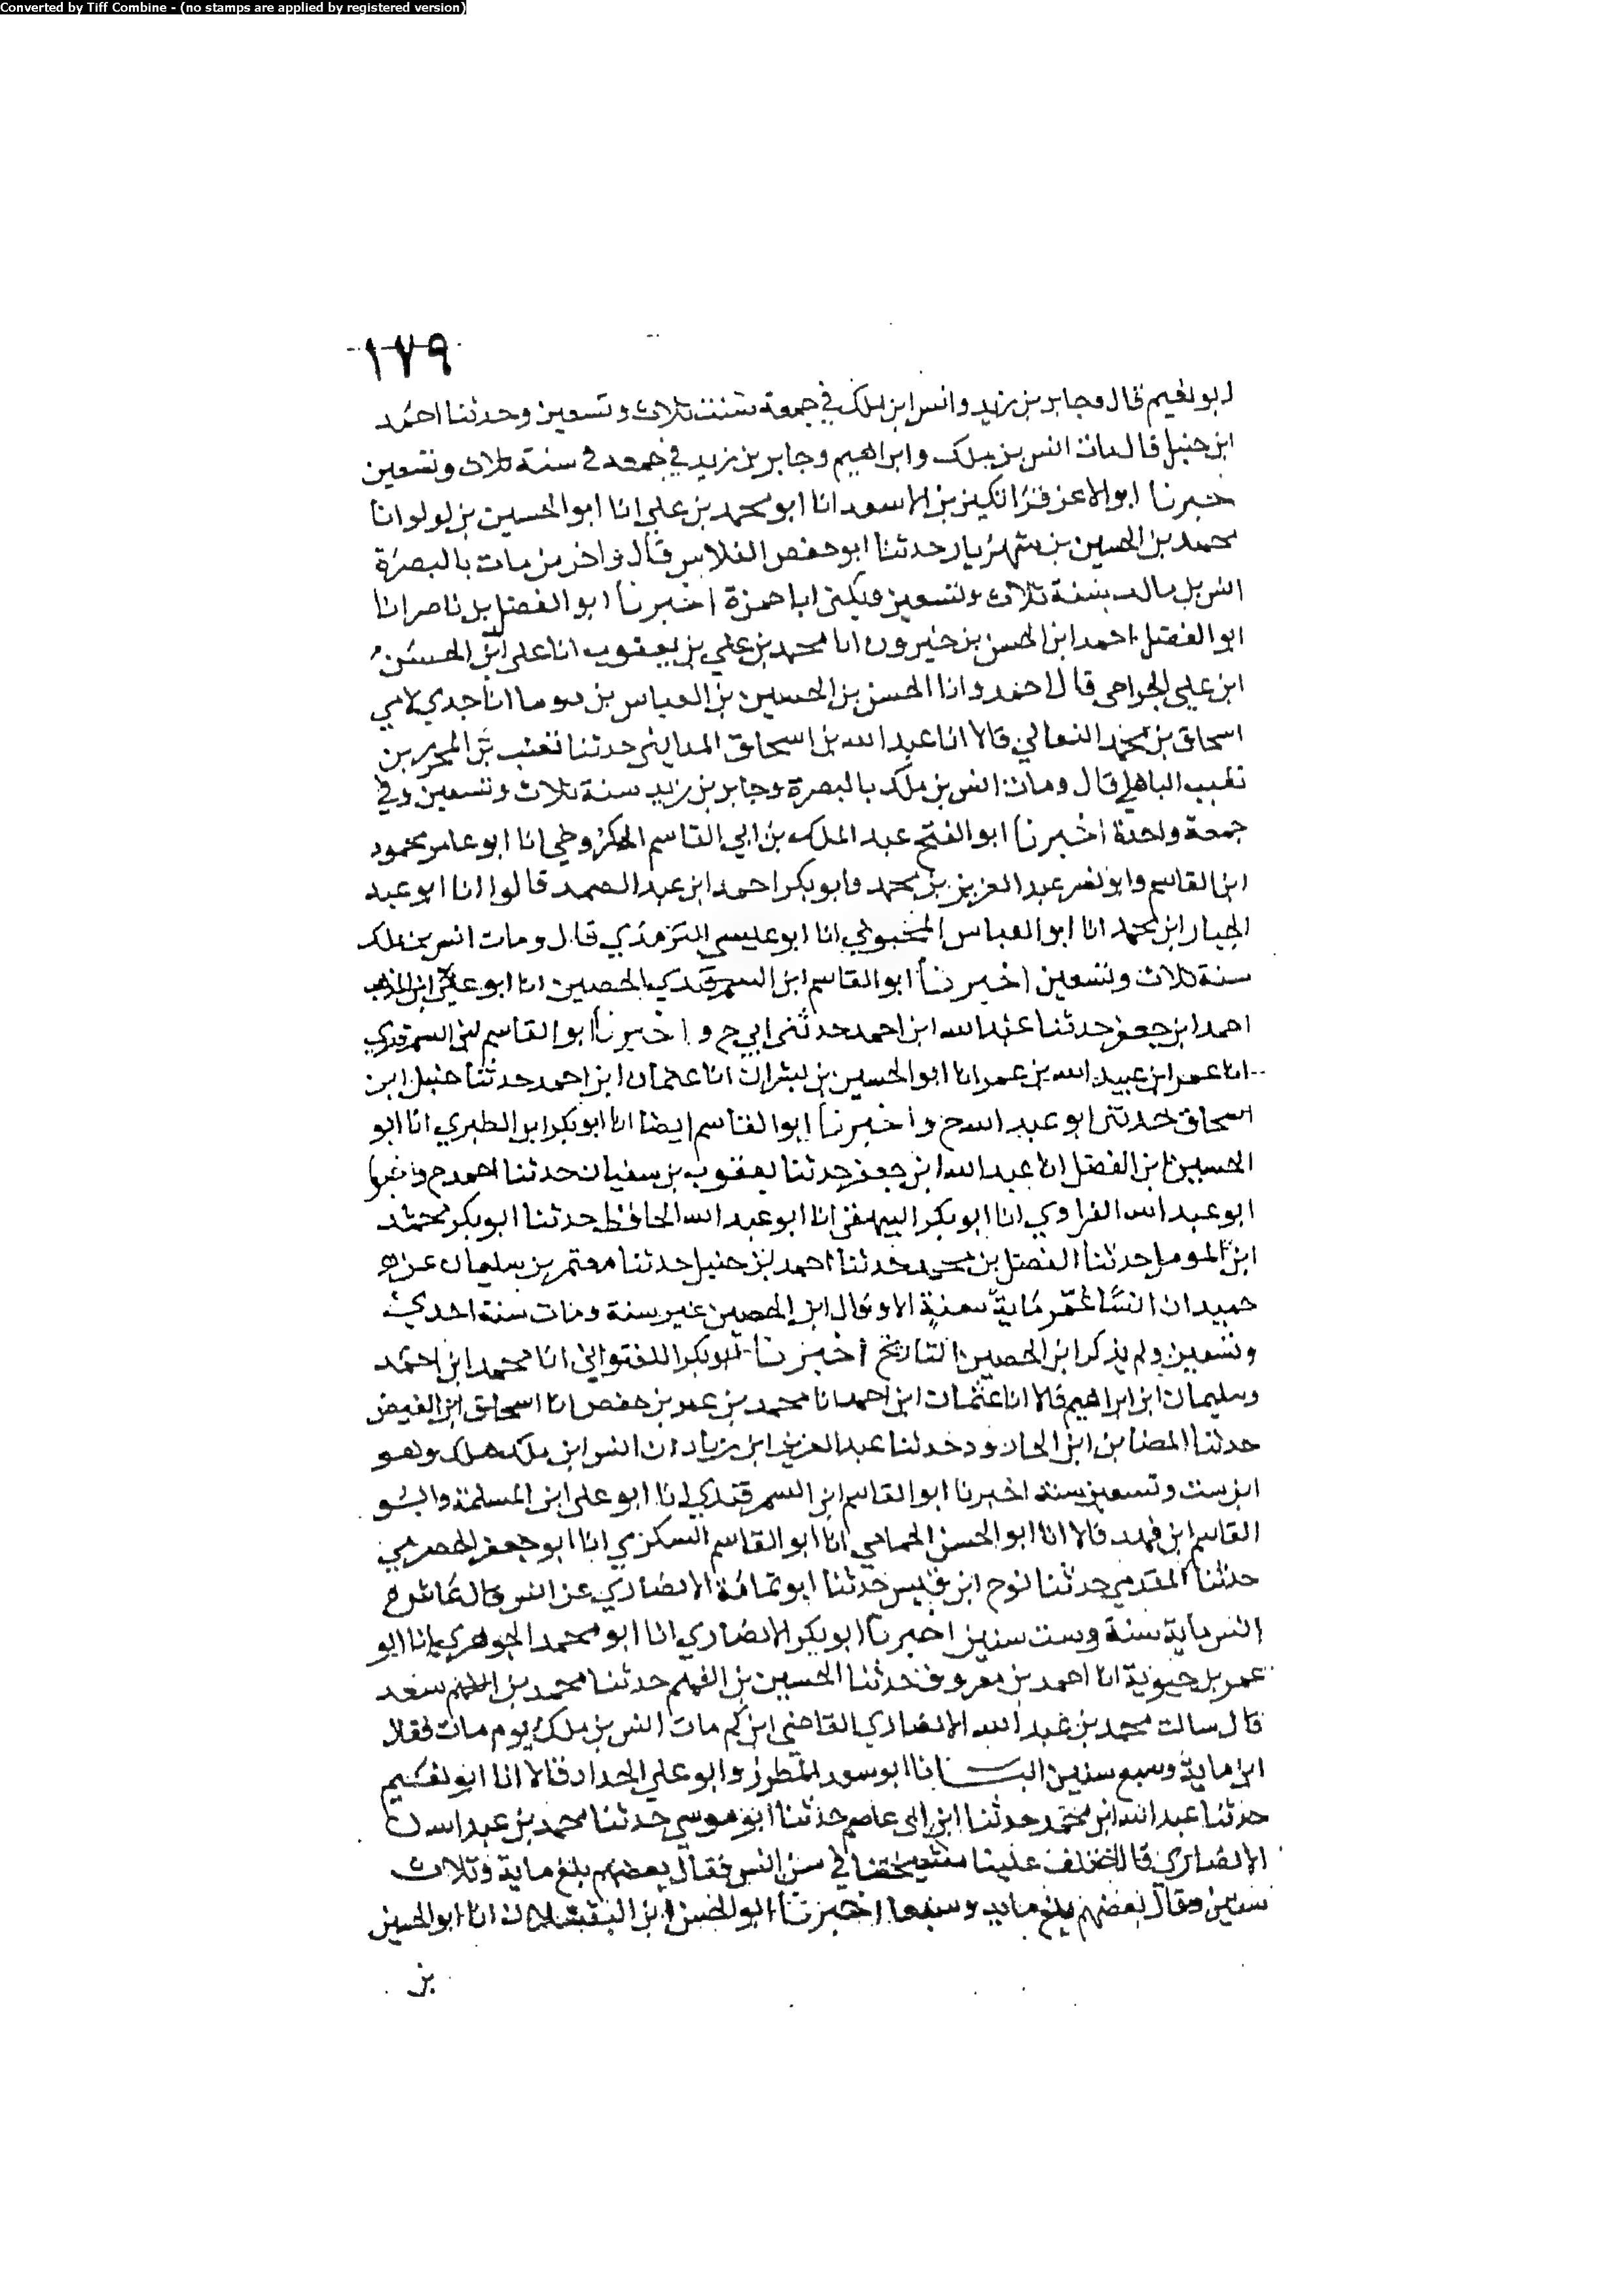 Converted by Tiff Combine - (no stamps are applied by registered version)
١٧٩
ابو نعيم قال وجابر بن زيد وانس ابن ملك في جمعة سنة ثلاث وتسعين وحدثنا احمد
ابن حنبل قال مات انس بن ملك وابراهيم وجابر بن زيد في جمعه في سنة ثلاث وتسعين
خبرنا ابو الاعز قراتكين بن الاسعد انا ابو محمد بن علي انا ابو الحسين بن لولو انا
محمد بن الحسين بن شهريار حدثنا ابو حفص الفلاس قال واخر من مات بالبصرة
انس بن مالك سنة ثلاث وتسعين ويكنى ابا حمزة اخبرنا ابو الفضل بن ناصر انا
ابو الفضل احمد ابن الحسن بن خيرون انا محمد بن علي بن يعقوب انا علي ابن الحسن
ابن علي الجراحي قال احمد وانا الحسن بن الحسين بن العباس بن دوما انا جدي لامي
اسحاق بن محمد النعالي قالا انا عبد الله بن اسحاق المدايني حدثنا قعنب بن المحرر بن
قعنب الباهلي قال ومات انس بن ملك بالبصرة وجابر بن زيد سنة ثلاث وتسعين وفي
جمعة واحدة اخبرنا ابو الفتح عبد الملك بن ابي القاسم الكروخي انا ابو عامر محمود
ابن القاسم وابو نصر عبد العزيز بن محمد وابو بكر احمد ابن عبد الصمد قالوا انا ابو عبد
الجبار ابن محمد انا ابو العباس المحبوبي انا ابو عيسي الترمذي قال ومات انس بن ملك
سنة ثلاث وتسعين اخبرنا ابو القاسم ابن الحصين انا ابو علي ابن المذهب
احمد ابن جعفر حدثنا عبد الله ابن احمد حدثني ابي ح واخبرنا ابو القاسم بن السمرقندي
انا عمر ابن عبيد الله بن عمر انا ابو الحسين بن بشران انا عثمان ابن احمد حدثنا حنبل ابن
اسحاق حدثني ابو عبد الله ح واخبرنا ابو القاسم ايضا انا ابو بكر ابن الطبري انا ابو
الحسين ابن الفضل انا عبد الله ابن جعفر حدثنا يعقوب بن سفيان حدثنا احمد ح واخبرنا
ابو عبد الله الفراوي انا ابو بكر البيهقي انا ابو عبد الله الحافظ حدثنا ابو بكر محمد
ابن المومل حدثنا الفضل بن محمد حدثنا احمد بن حنبل حدثنا معتمر بن سليمان عن
حميد ان انسا عمر ماية سنة الا وقال ابن الحصين غير سنة ومات سنة احدي
وتسعين ولم يذكر ابن الحصين التاريخ اخبرنا ابو بكر اللفتواني انا محمد ابن احمد
وسليمان ابن ابراهيم قالا انا عثمان ابن احمد انا محمد بن عمر بن حفص انا اسحاق ابن الفيض
حدثنا المضا بن ابن الجارود حدثنا عبد العزيز ابن زياد ان انس ابن ملك هلك وهو
ابن ست وتسعين سنة اخبرنا ابو القاسم ابن السمرقندي انا ابو علي ابن المسلمة وابو
القاسم ابن فهد قالا انا ابو الحسن الحمامي انا ابو القاسم السكري انا ابو جعفر الحضرمي
حدثنا المقدمي حدثنا نوح ابن قيس حدثنا ابو ثمامة الانصاري عن انس قال عاش
انس ماية سنة وست سنين اخبرنا ابو بكر الانصاري انا ابو محمد الجوهري انا ابو
عمر بن حيوية انا احمد بن معروف حدثنا الحسين بن الفهم حدثنا محمد بن سعد
قال سالت محمد بن عبد الله الانصاري القاضي ابن كم مات انس بن ملك يوم مات فقال
ابن ماية وسبع سنين انبانا ابو سعد المطرز وابو علي الحداد قالا انا ابو نعيم
حدثنا عبد الله ابن محمد حدثنا ابن ابي عاصم حدثنا ابو موسي حدثنا محمد بن عبد الله
الانصاري قال اختلف علينا مشيختنا في سن انس فقال بعضهم بلغ ماية وثلاث
سنين وقال بعضهم بلغ ماية وسبعا اخبرنا ابو الحسن ابن البقشلان انا ابو الحسين
بن